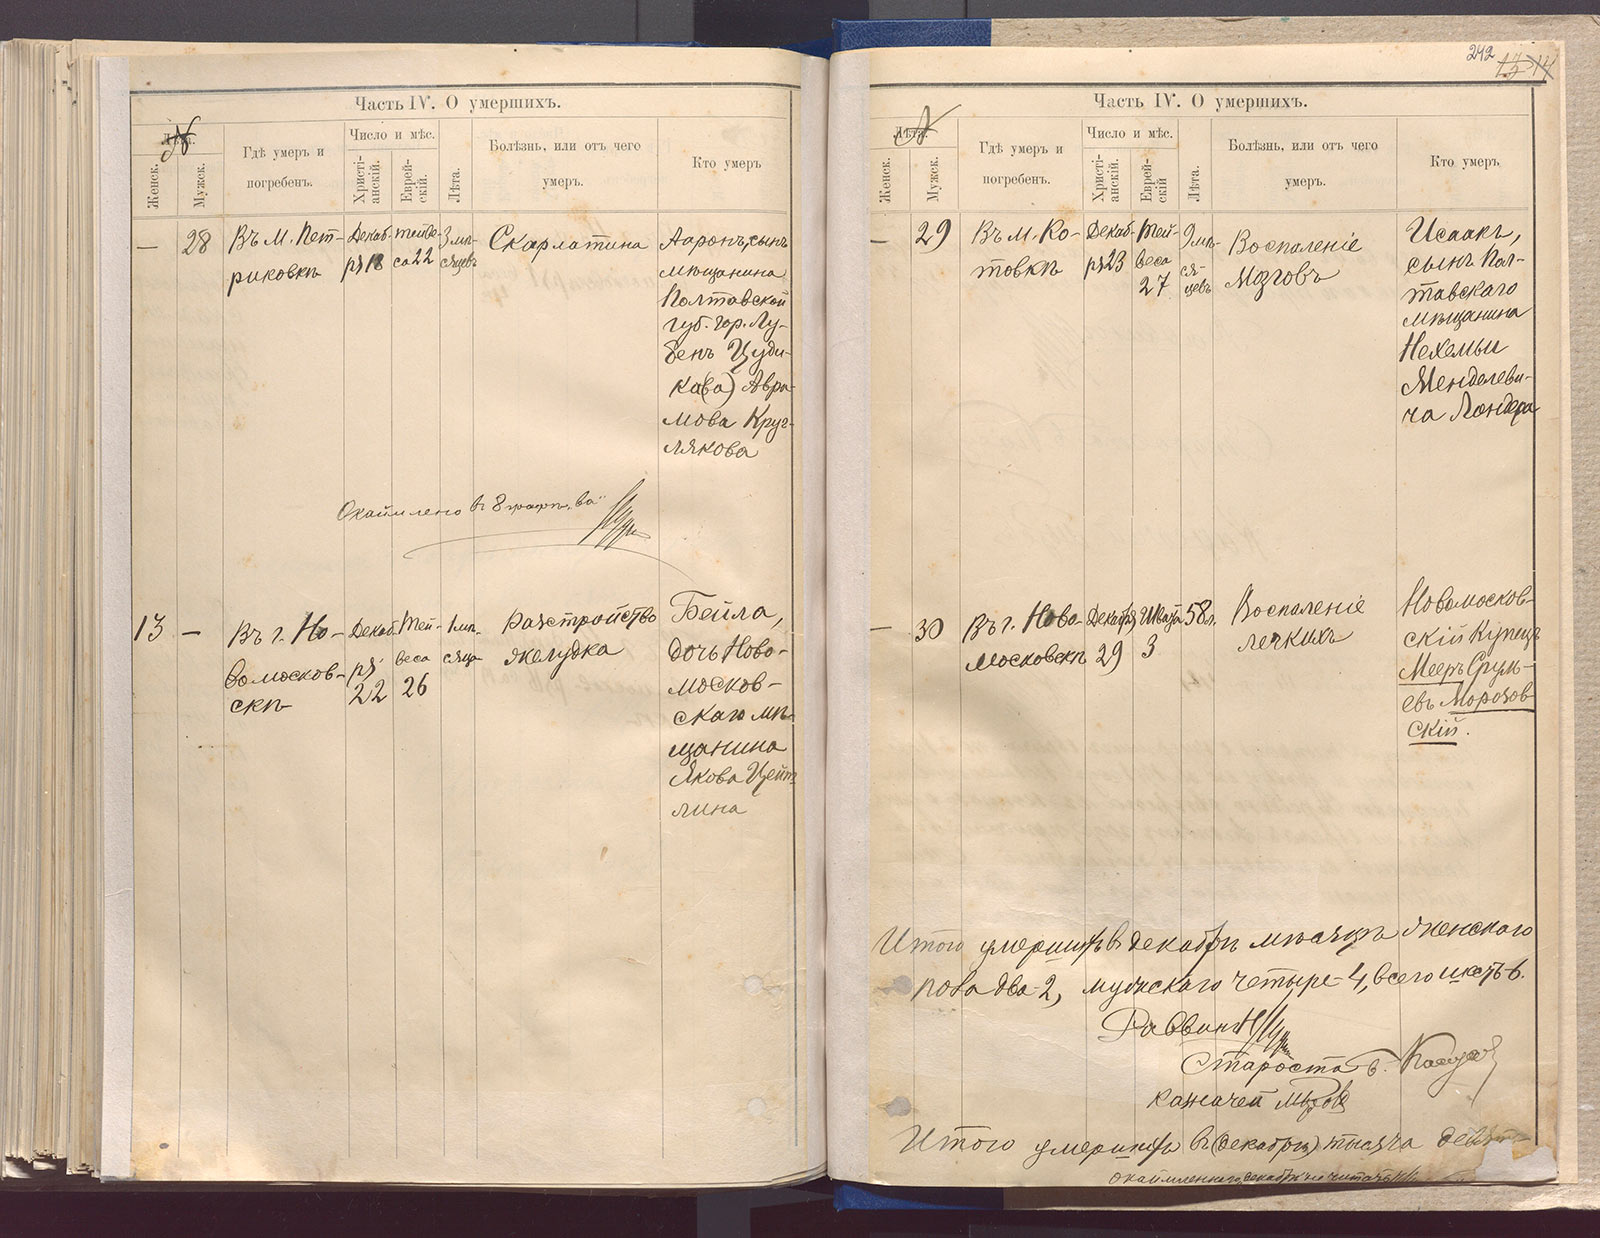 Часть IV. О умершихъ.
Лѣта.
Женск.
Мужск.
Гдѣ умеръ и
погребенъ.
Число и мѣс.
Христі-
анскій.
Еврей-
скій.
Лѣта.
Болѣзнь, или отъ чего
умеръ.
Кто умеръ
—
28
Въ м. Пет-
риковкѣ
Декаб-
ря 18
тейве-
са 22
3 мѣ-
сяцевъ
Скарлатина
Ааронъ, сынъ
мѣщанина
Полтавской
губ. гор. Лу-
бенъ Цуди-
ка(ва) Авра-
мова Круг-
лякова
Окаймлено въ 8 графѣ „ва"
13
—
Въ г. Но-
вомосков-
скѣ
Декаб-
ря
22
Тей-
веса
26
1 мѣ-
сяца
Разстройство
желудка
Бейла,
дочь Ново-
москов-
скаго мѣ-
щанина
Якова Цейт-
лина
242
15 14
Часть IV. О умершихъ.
Лѣта.
Женск.
Мужск.
Гдѣ умеръ и
погребенъ.
Число и мѣс.
Христі-
анскій.
Еврей-
скій
Лѣта.
Болѣзнь, или отъ чего
умеръ.
Кто умеръ
—
29
Въ м. Ко-
товкѣ
Декаб-
ря 23
Тей-
веса
27
9 мѣ-
ся-
цевъ
Воспаленіе
мозговъ
Исаакъ,
сынъ Пол-
тавскаго
мѣщанина
Нехемьи
Менделеви-
ча Лондера
—
30
Въ г. Ново-
московскѣ
Декабря
29
Шваза
3
58 л.
Воспаленіе
легкихъ
Новомосков-
скій Купецъ
Мееръ Сруль-
евъ Морозов-
скій.
Итого умершихъ въ декабрѣ мѣсяцѣ женскаго
пола два-2, мужскаго четыре-4, всего шесть-6.
Раввинъ
Староста Б.
казначей
Итого умершихъ въ (декабрѣ) тысяча девят-
окаймленнаго „декабрѣ" не читать